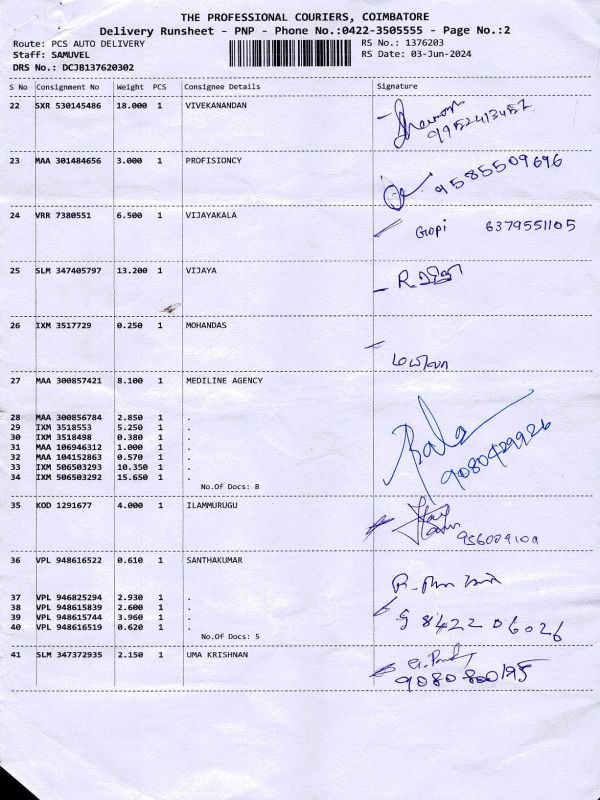 THE PROFESSIONAL COURIERS, COIMBATORE
Delivery Runsheet - PNP - Phone No.:0422-3505555 - Page No.:2
Route: PCS AUTO DELIVERY
RS No.: 1376203
Staff: SAMUVEL
RS Date: 03-Jun-2024
DRS No.: DCJB137620302
S No Consignment No Weight PCS Consignee Details Signature
22 SXR 530145486 18.000 1 VIVEKANANDAN
9952413457
23 MAA 301484656 3.000 1 PROFISIONCY
9585509696
24 VRR 7380551 6.500 1 VIJAYAKALA
Gopi 6379551105
25 SLM 347405797 13.200 1 VIJAYA
26 IXM 3517729 0.250 1 MOHANDAS
27 MAA 300857421 8.100 1 MEDILINE AGENCY
28 MAA 300856784 2.850 1 .
29 IXM 3518553 5.250 1 .
30 IXM 3518498 0.380 1 .
31 MAA 106946312 1.000 1 .
32 MAA 104152863 0.570 1 .
33 IXM 506503293 10.350 1 .
34 IXM 506503292 15.650 1 .
No.Of Docs: 8
Bala
9080429926
35 KOD 1291677 4.000 1 ILAMMURUGU
36 VPL 948616522 0.610 1 SANTHAKUMAR
37 VPL 946825294 2.930 1 .
38 VPL 948615839 2.600 1 .
39 VPL 948615744 3.960 1 .
40 VPL 948616519 0.620 1 .
No.Of Docs: 5
9842206026
41 SLM 347372935 2.150 1 UMA KRISHNAN
9080800195